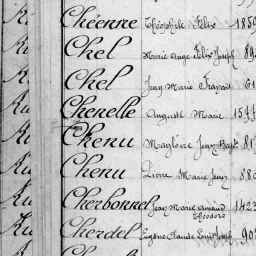 Chéenne Théophile Félix 1850
Chel Marie Ange Félix Joseph 89
Chel Jean Marie François 61
Chenelle Auguste Marie 1577
Chenu Magloire Jean Bapt 81
Chenu Pierre Marie Jean 880
Cherbonnel Jean Marie Armand 1423
Théodore
Cherdel Eugène Claude Louis Joseph 90